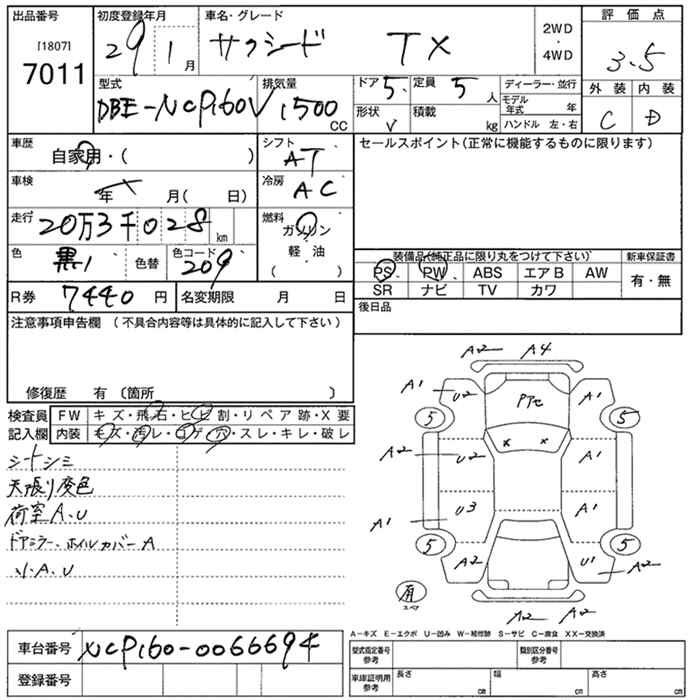 出品番号 初度登録年月 車名・グレード 2WD・4WD 評価点
[1807]
7011
29 1月 サクシード TX 3.5
型式 排気量 ドア 5 定員 5人 ディーラー・並行 外装 内装
DBE-NCP160V 1500CC 形状 V 積載 kg モデル年式 年 C D
ハンドル 左・右
車歴 シフト セールスポイント(正常に機能するものに限ります)
自家用・( ) AT
車検 冷房
年 月( 日) AC
走行 燃料
20万3千028km ガソリン
色 色コード 軽・油
黒1 色替 209 ( )
装備品(純正品に限り丸をつけて下さい) 新車保証書
PS PW ABS エアB AW 有・無
SR ナビ TV カワ
R券 7440円 名変期限 月 日 後日品
注意事項申告欄(不具合内容等は具体的に記入して下さい)
修復歴 有〔箇所 〕
検査員 FW キズ・飛石・ヒビ割・リペア跡・X要
記入欄 内装 キズ・汚レ・コゲ・穴・スレ・キレ・破レ
シートシミ
天張り変色
荷室A、U
ドアミラー、ホイルカバーA
小A、U
A2 A4
A1 U2 A1
5 5
A2 U2 A1
A1 U3 A1
5 5
A2 U1 A2
有
スペア
A2 A2
A-キズ E-エクボ U-凹み W-補修跡 S-サビ C-腐食 XX-交換済
車台番号 NCP160-0066694
登録番号
型式指定番号 参考 類別区分番号 参考
車庫証明用 参考 長さ cm 幅 cm 高さ cm